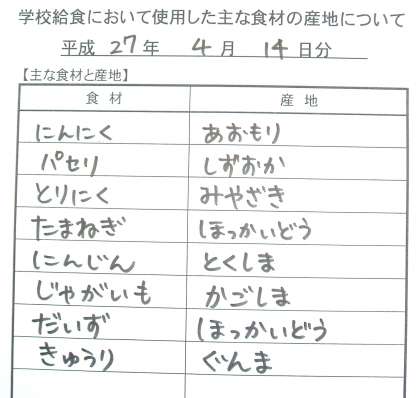 学校給食において使用した主な食材の産地について
平成 27 年 4 月 14 日分
【主な食材と産地】
食材 産地
にんにく あおもり
パセリ しずおか
とりにく みやざき
たまねぎ ほっかいどう
にんじん とくしま
じゃがいも かごしま
だいず ほっかいどう
きゅうり ぐんま